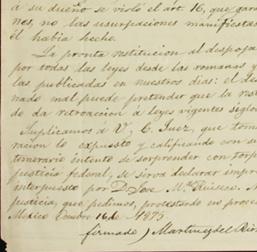 á su dueño se violó el art. 16, que gara
nes, no las usurpaciones manifiestas
El había hecho.
La pronta restitucion al despoja
por todas las leyes desde las romanas y
las publicadas en nuestros dias: el
nado mal puede pretender que la
da de retroaccion á leyes vigentes siglos
Suplicamos á V, C. Juez, que tom
racion lo expuesto y calificando con se
temerario intento de sorprender con torpe
justicia federal, se sirva declarar impro
interpuesto por D. José Mª
justicia, que pedimos, protestando no proce
México 16 de 1875
firmado) Martinez del Rio